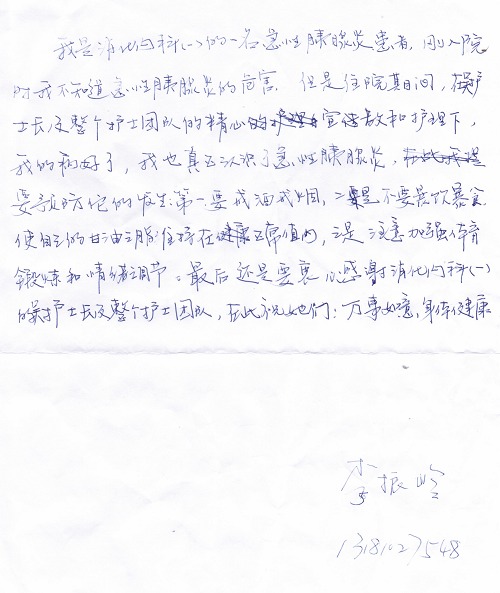 我是消化内科(一)的一名急性胰腺炎患者,刚入院
时我不知道急性胰腺炎的危害,但是住院其间,在护
士长及整个护士团队的精心宣教和护理下,
我的病好了,我也真正认识了急性胰腺炎,
要预防它的发生:第一要戒酒戒烟,二是不要暴饮暴食
使自己的甘油三脂维持在正常值内,三是注意加强体育
锻炼和情绪调节。最后还是要衷心感谢消化内科(一)
的护士长及整个护士团队,在此祝她们:万事如意,身体健康
李振岭
1381027548